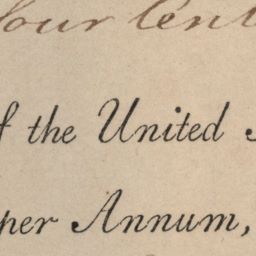 Four Cent
f the United S
per Annum,